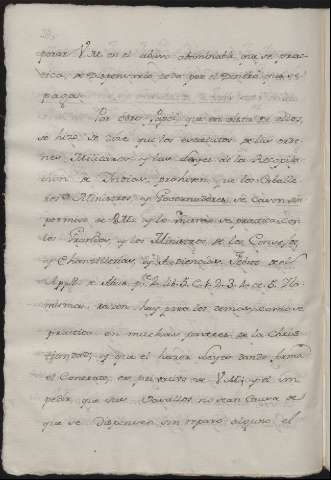 parar V.M. en el abuso abominable que se prac-
tica, de Dispensarlo todo por el Dinero que se
paga.
Por otro Papel que en vista de ellos,
se hizo se dice que los estatutos de las orde-
nes Militares y las Leyes de la Recopila-
cion de Indias, prohiven que los Cavalle-
ros Ministros y Governadores, se casen sin
permiso de V.M. y lo mismo se practica con
los Grandes, y los Ministros de los Consejos,
y Chancillerias, y Audiencias,
misma razon hay para los demas, como se
practica en muchas partes de la Chris-
tiandad, y que el honor
el Contrato, en perjuicio de V.M. y el im-
pedir que sus Vasallos no sean Causa de
que se Dispensen sin reparo alguno el